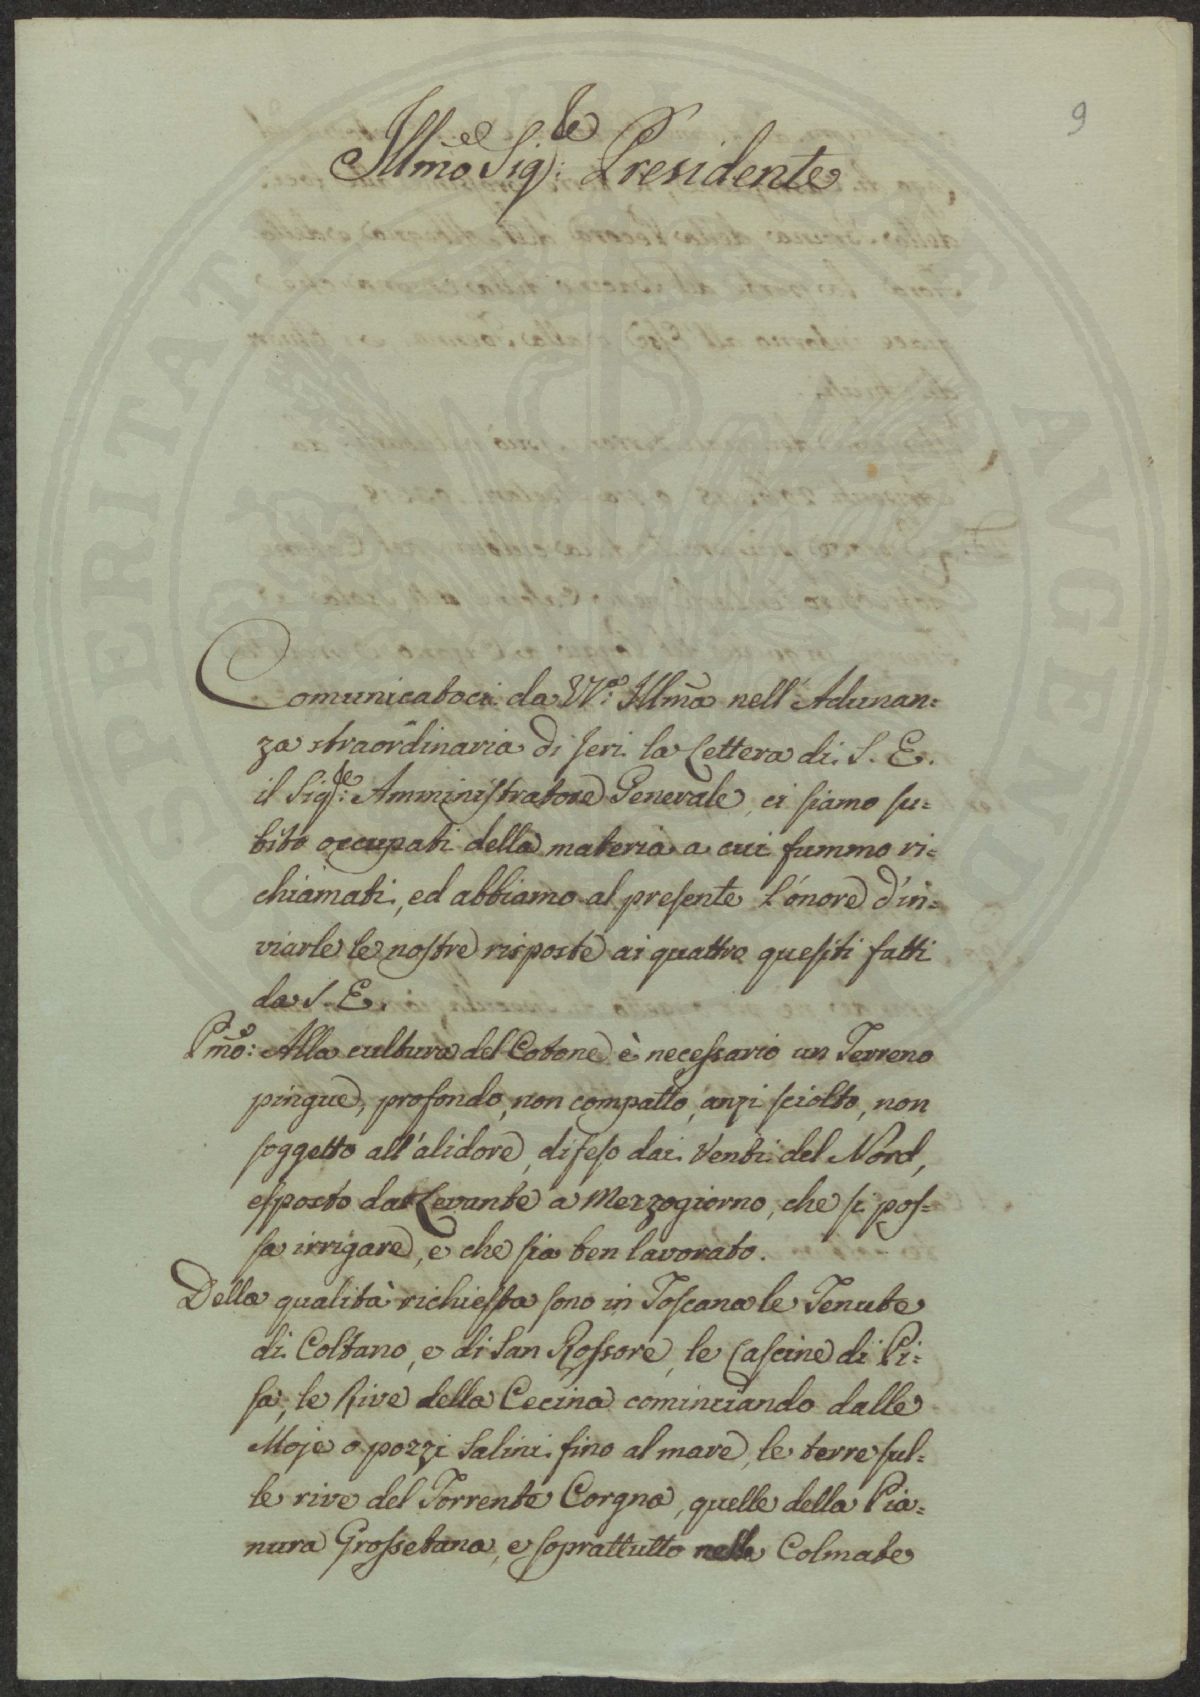 9
Illmo Sigre: Presidente
Comunicatoci da VS: Illma nell'Adunan=
za straordinaria di Jeri la Lettera di S. E.
il Sigre: Amministratore Generale, ci siamo su=
bito occupati della materia a cui fummo ri=
chiamati, ed abbiamo al presente l'onore d'in=
viarle le nostre risposte ai quattro quesiti fatti
da S. E.
Pmo: Alla cultura del Cotone è necessario un Terreno
pingue, profondo, non compatto, anzi sciolto, non
soggetto all'alidore, difeso dai Venti del Nord,
esposto da Levante a Mezzogiorno, che si pos=
sa irrigare, e che sia ben lavorato.
Della qualità richiesta sono in Toscana le Tenute
di Coltano, e di San Rossore, le Cascine di Pi=
sa, le Rive della Cecina cominciando dalle
Moje o pozzi Salini fino al mare, le terre sul=
le rive del Torrente Corgna, quelle della Pia=
nura Grossetana, e soprattutto nelle Colmate
PERITATI PUBLICAE AUGENDAE